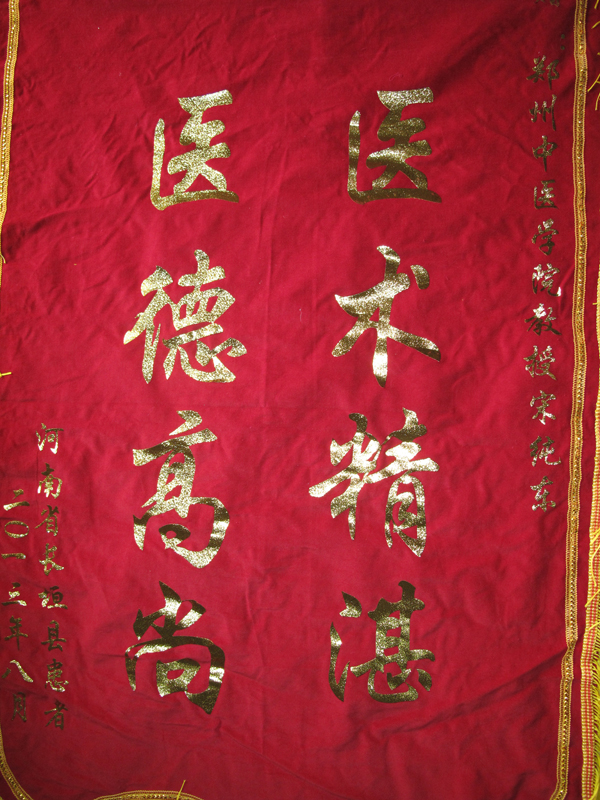 郑州中医学院教授宋纯东
医术精湛
医德高尚
河南省长垣县患者
二〇一三年八月